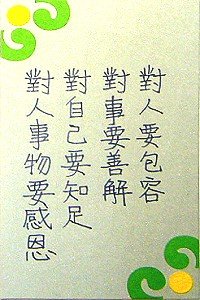 對人要包容
對事要善解
對自己要知足
對人事物要感恩